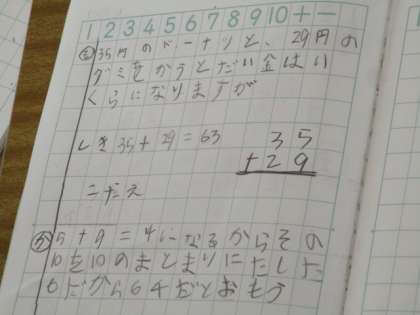 1 2 3 4 5 6 7 8 9 10 + −
も 35円のドーナツと、29円の
グミをかうとだい金はい
くらになりますが
しき 35+29=63
35
+29
こたえ
か 5+9=14になるからその
10を10のまとまりにたした
6だから64だとおもう